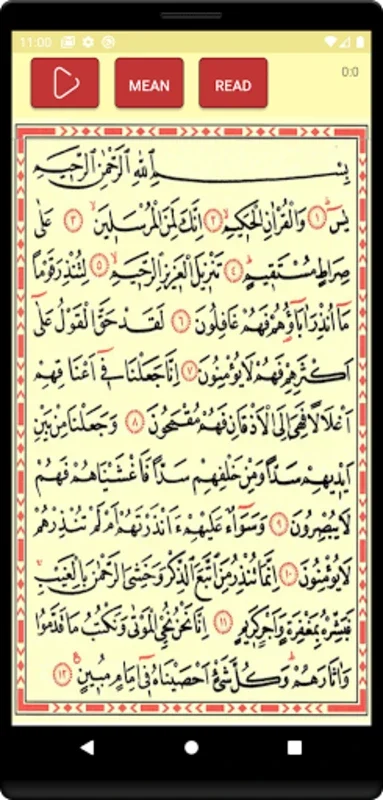 11:00
MEAN READ 0:0
بِسْمِ اللّٰهِ الرَّحْمٰنِ الرَّحِيمِ
يٰسٓ ﴿١﴾ وَالْقُرْاٰنِ الْحَكِيمِ ﴿٢﴾ اِنَّكَ لَمِنَ الْمُرْسَلِينَ ﴿٣﴾ عَلٰى
صِرَاطٍ مُسْتَقِيمٍ ﴿٤﴾ تَنْزِيلَ الْعَزِيزِ الرَّحِيمِ ﴿٥﴾ لِتُنْذِرَ قَوْمًا
مَٓا اُنْذِرَ اٰبَٓاؤُ۬هُمْ فَهُمْ غَافِلُونَ ﴿٦﴾ لَقَدْ حَقَّ الْقَوْلُ عَلٰٓى
اَكْثَرِهِمْ فَهُمْ لَا يُؤْمِنُونَ ﴿٧﴾ اِنَّا جَعَلْنَا فِٓي اَعْنَاقِهِمْ
اَغْلَالًا فَهِيَ اِلَى الْاَذْقَانِ فَهُمْ مُقْمَحُونَ ﴿٨﴾ وَجَعَلْنَا مِنْ بَيْنِ
اَيْدِيهِمْ سَدًّا وَمِنْ خَلْفِهِمْ سَدًّا فَاَغْشَيْنَاهُمْ فَهُمْ
لَا يُبْصِرُونَ ﴿٩﴾ وَسَوَٓاءٌ عَلَيْهِمْ ءَاَنْذَرْتَهُمْ اَمْ لَمْ تُنْذِرْهُمْ
لَا يُؤْمِنُونَ ﴿١٠﴾ اِنَّمَا تُنْذِرُ مَنِ اتَّبَعَ الذِّكْرَ وَخَشِيَ الرَّحْمٰنَ بِالْغَيْبِ
فَبَشِّرْهُ بِمَغْفِرَةٍ وَاَجْرٍ كَرِيمٍ ﴿١١﴾ اِنَّا نَحْنُ نُحْيِ الْمَوْتٰى وَنَكْتُبُ مَا قَدَّمُوا
وَاٰثَارَهُمْ وَكُلَّ شَيْءٍ اَحْصَيْنَاهُ فِٓي اِمَامٍ مُبِينٍ ﴿١٢﴾